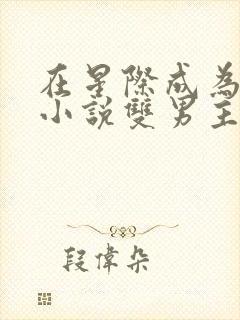 在星際成為
小說雙男主
段偉朵